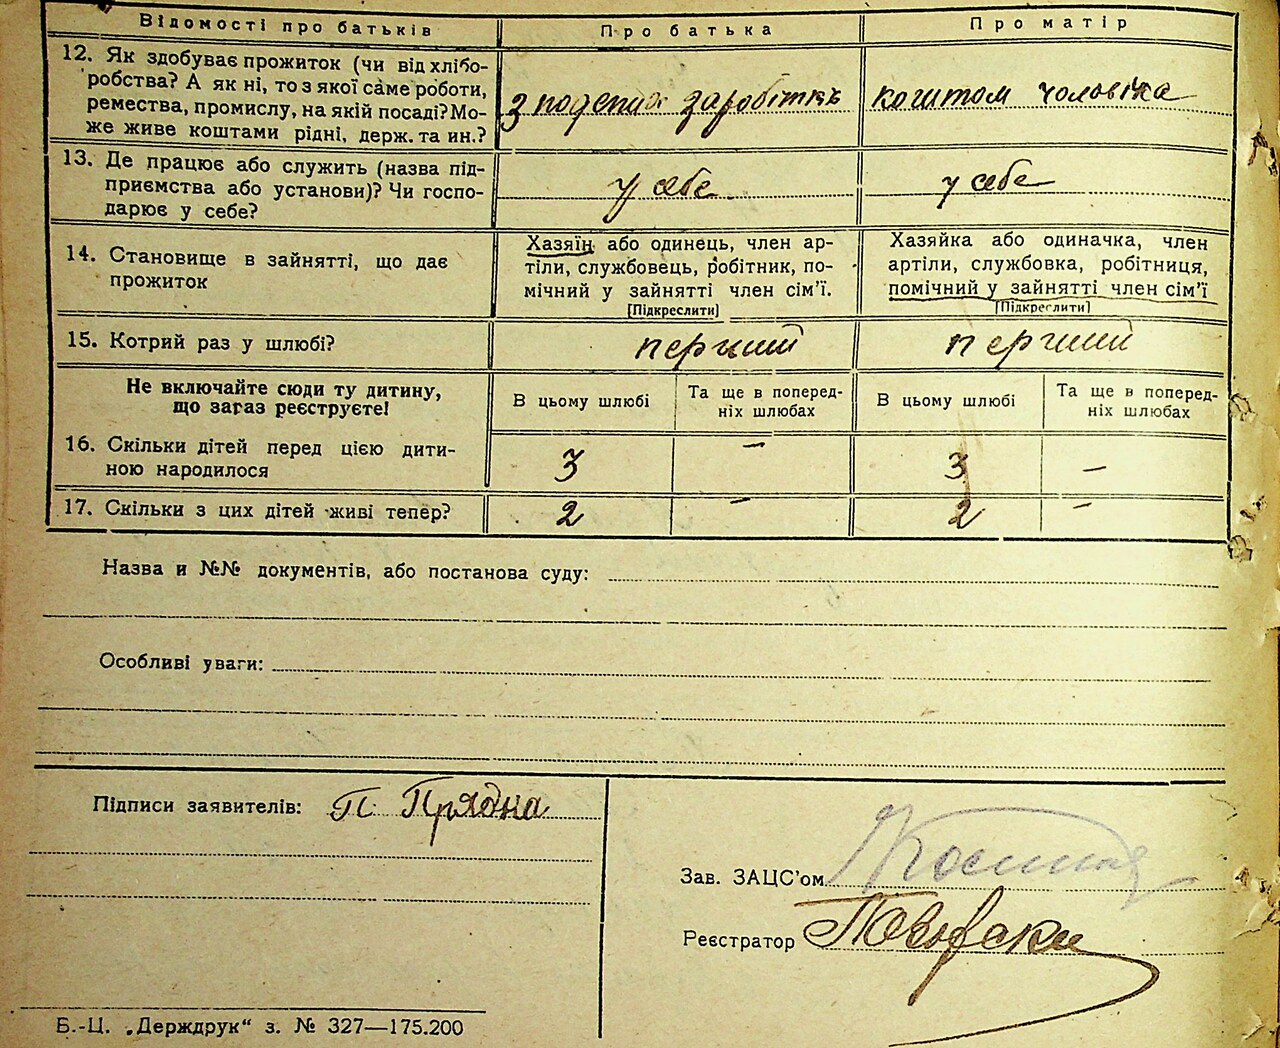 Відомості про батьків Про батька Про матір
12. Як здобуває прожиток (чи від хлібо-
робства? А як ні, то з якої саме роботи,
ремества, промислу, на якій посаді? Мо-
же живе коштами рідні, держ. та ин.?
з поденних заробітків коштом чоловіка
13. Де працює або служить (назва під-
приємства або установи)? Чи госпо-
дарює у себе?
у себе у себе
14. Становище в зайнятті, що дає
прожиток
Хазяїн або одинець, член ар-
тіли, службовець, робітник, по-
мічний у зайнятті член сім'ї.
[Підкреслити]
Хазяйка або одиначка, член
артіли, службовка, робітниця,
помічний у зайнятті член сім'ї
[Підкреслити]
15. Котрий раз у шлюбі? перший перший
Не включайте сюди ту дитину,
що зараз реєструєте!
В цьому шлюбі
Та ще в поперед-
ніх шлюбах
В цьому шлюбі
Та ще в поперед-
ніх шлюбах
16. Скільки дітей перед цією дити-
ною народилося
3 — 3 —
17. Скільки з цих дітей живі тепер? 2 — 2 —
Назва и №№ документів, або постанова суду:
Особливі уваги:
Підписи заявителів: П. Прядка
Зав. ЗАЦС'ом
Реєстратор
Б.-Ц. „Держдрук“ з. № 327—175.200